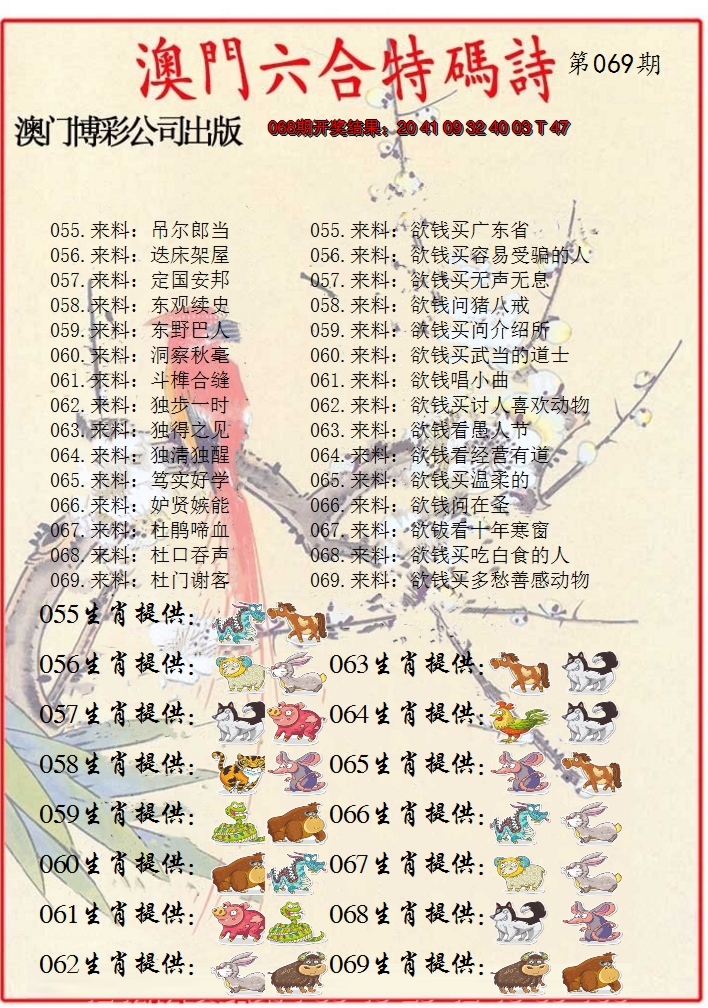 澳門六合特碼詩 第069期
澳门博彩公司出版
068期开奖结果：20 41 09 32 40 03 T 47
055.来料：吊尔郎当 055.来料：欲钱买广东省
056.来料：迭床架屋 056.来料：欲钱买容易受骗的人
057.来料：定国安邦 057.来料：欲钱买无声无息
058.来料：东观续史 058.来料：欲钱问猪八戒
059.来料：东野巴人 059.来料：欲钱买问介绍所
060.来料：洞察秋毫 060.来料：欲钱买武当的道士
061.来料：斗榫合缝 061.来料：欲钱唱小曲
062.来料：独步一时 062.来料：欲钱买讨人喜欢动物
063.来料：独得之见 063.来料：欲钱看愚人节
064.来料：独清独醒 064.来料：欲钱看经营有道
065.来料：笃实好学 065.来料：欲钱买温柔的
066.来料：妒贤嫉能 066.来料：欲钱问在圣
067.来料：杜鹃啼血 067.来料：欲钹看十年寒窗
068.来料：杜口吞声 068.来料：欲钱买吃白食的人
069.来料：杜门谢客 069.来料：欲钱买多愁善感动物
055生肖提供：
056生肖提供： 063生肖提供：
057生肖提供： 064生肖提供：
058生肖提供： 065生肖提供：
059生肖提供： 066生肖提供：
060生肖提供： 067生肖提供：
061生肖提供： 068生肖提供：
062生肖提供： 069生肖提供：